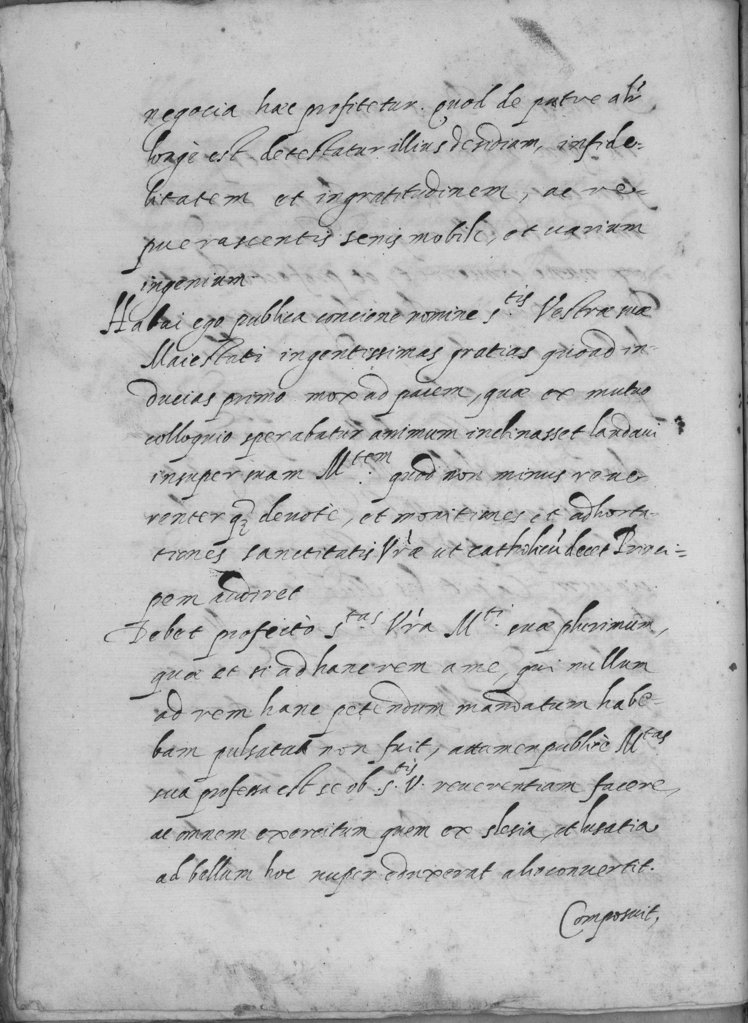 negocia haec profitetur. Quod de patre ahr̃
longè est detestatur illius desidium, infide-
litatem et ingratitudinem, ac re-
puerascentis senis mobile, et uarium
ingenium.
Habui ego publica concione nomine s.tis Vestrae suae
Maiestati ingentissimas gratias quoad in-
ducias primo mox ad pacem, quae ex mutuo
colloquio sperabatur animum inclinasset laudaui
insuper suam M.tem quod non minus reue
renter q; deuotè, et monitiones et adhorta-
tiones sanctitatis Vr̃ae ut catholicũ decet Princi-
pem audiret
Debet profectò s.tas Vr̃a M.ti suae plurimum,
quae et si ad hanc rem a me, qui nullum
ad rem hanc petendum mandatum habe-
bam pulsata non fuit, attamen publicè M.tas
sua professa est se ob s.tis V. reuerentiam facere,
ac omnem exercitum quem ex slesia, et lusatia
ad bellum hoc nuper eduxerat alio conuertit.
Composuit,